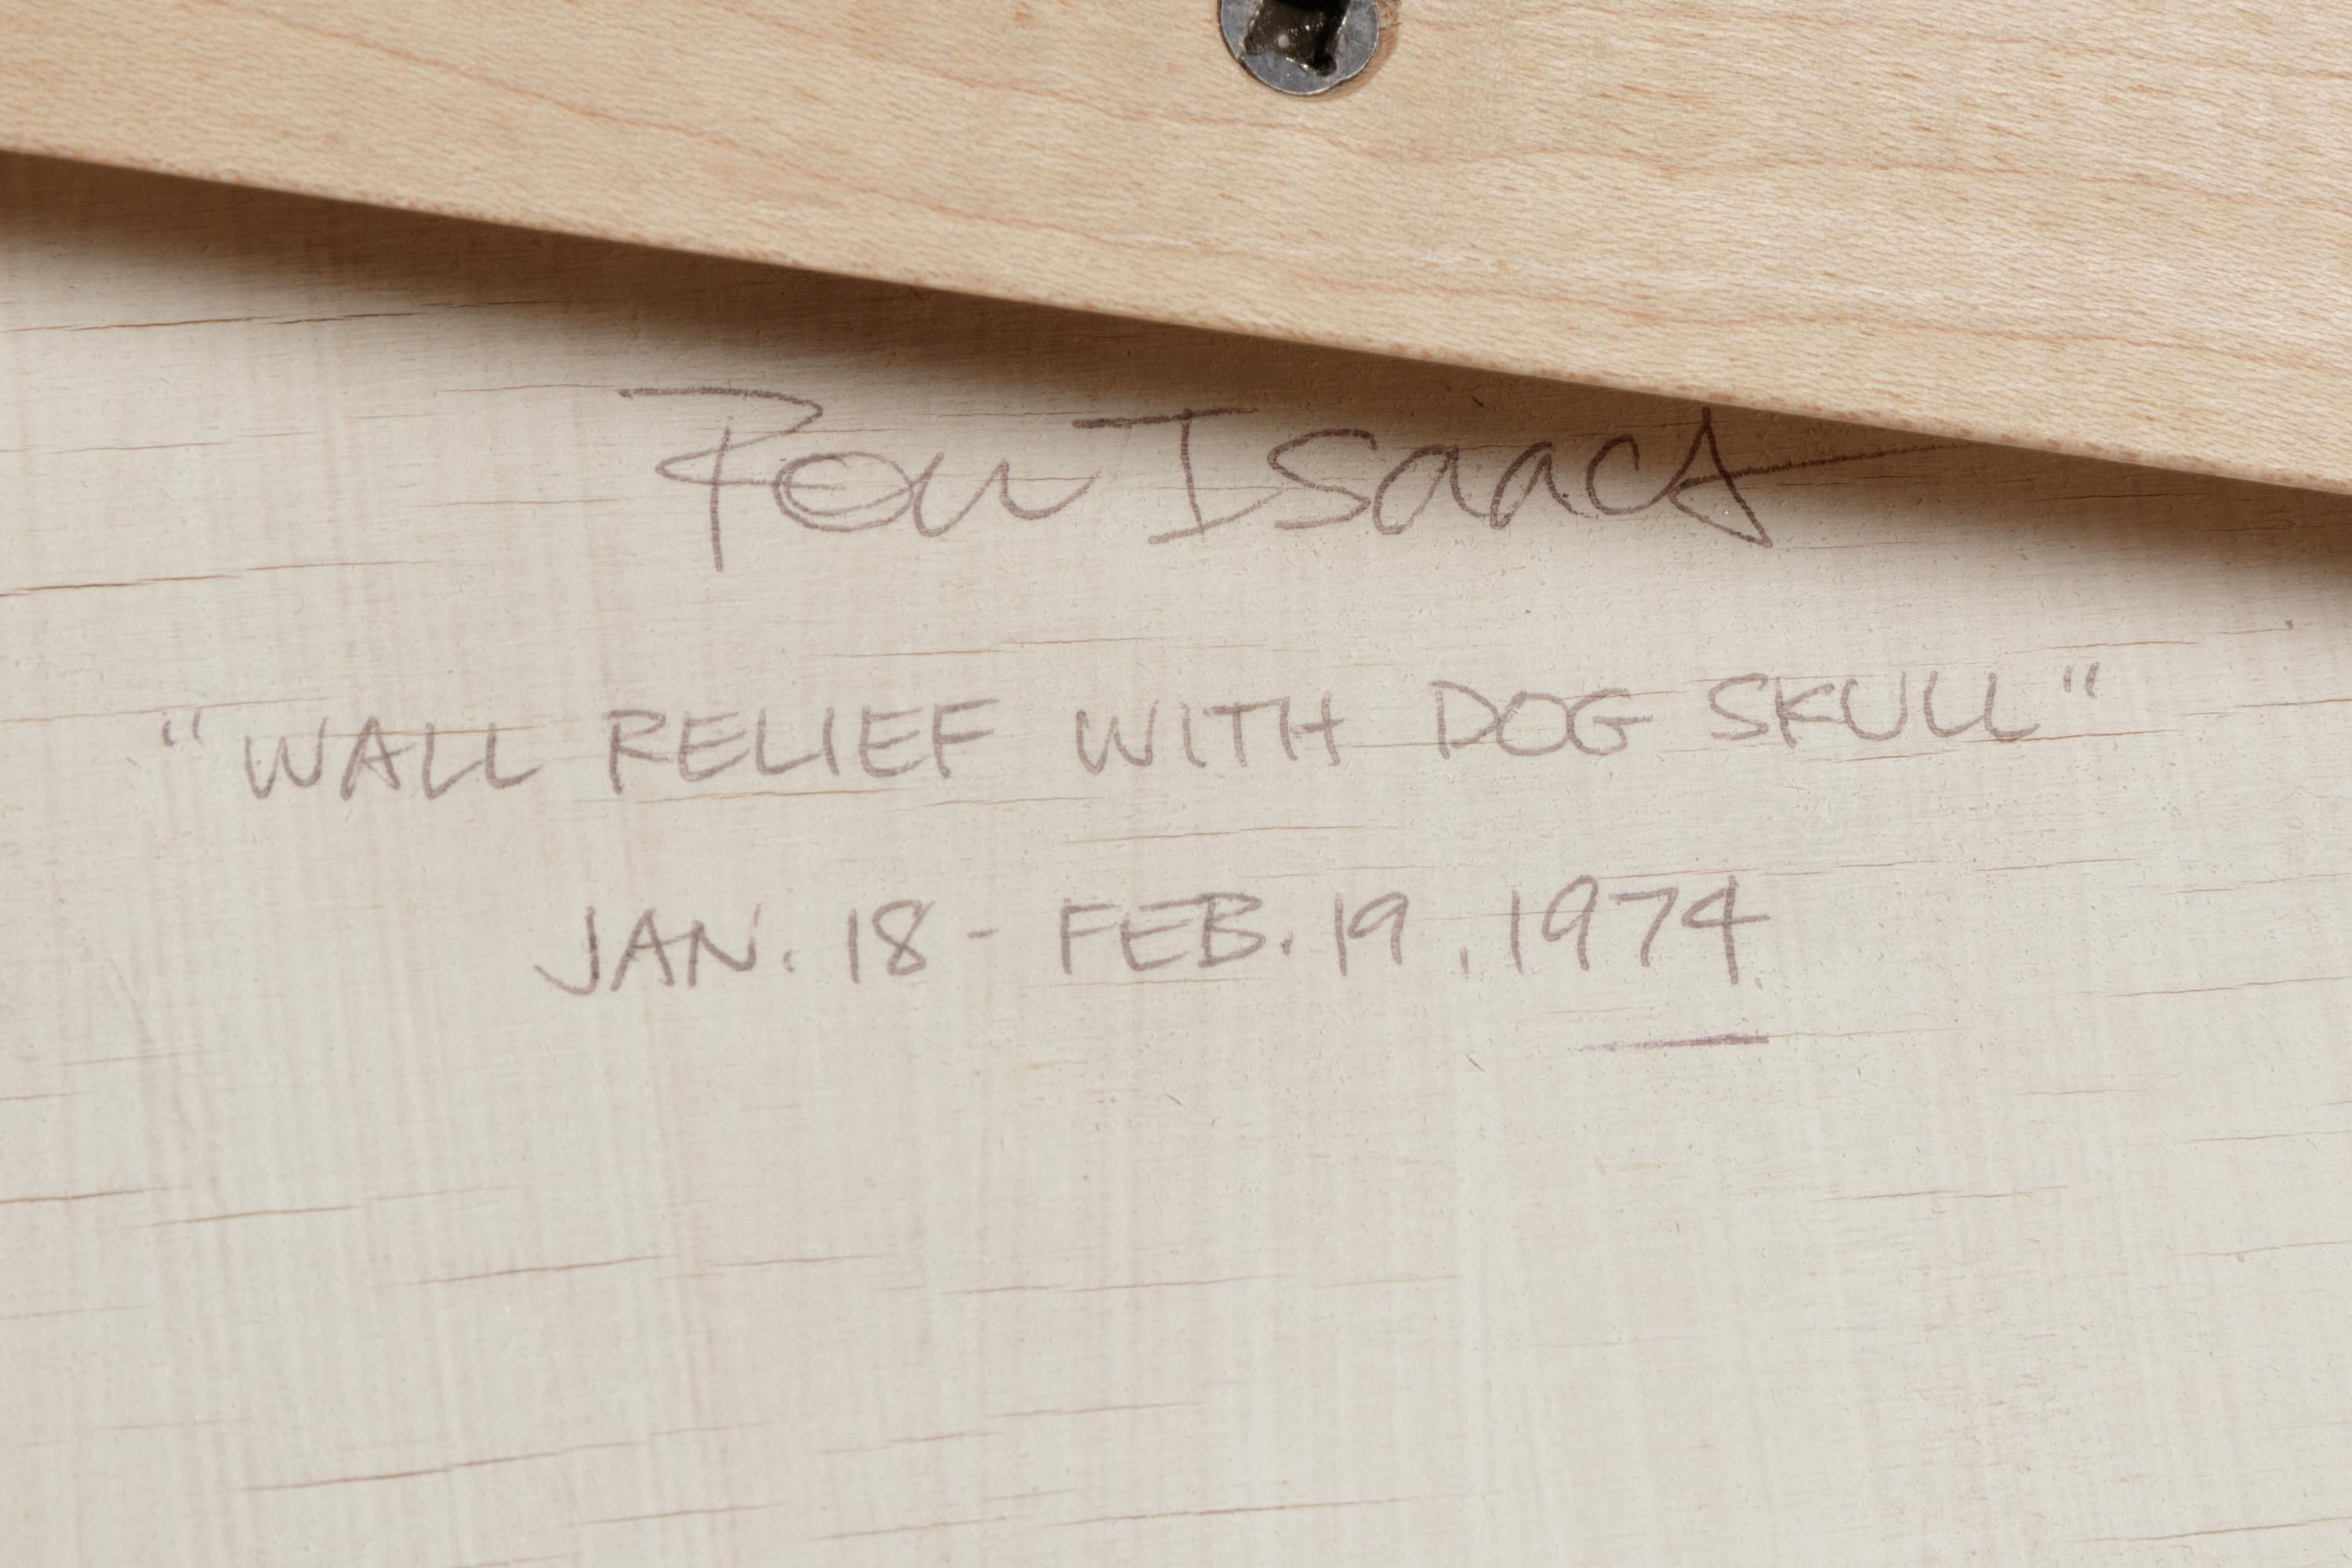 Ron Isaacs
"WALL RELIEF WITH DOG SKULL"
JAN. 18 - FEB. 19, 1974